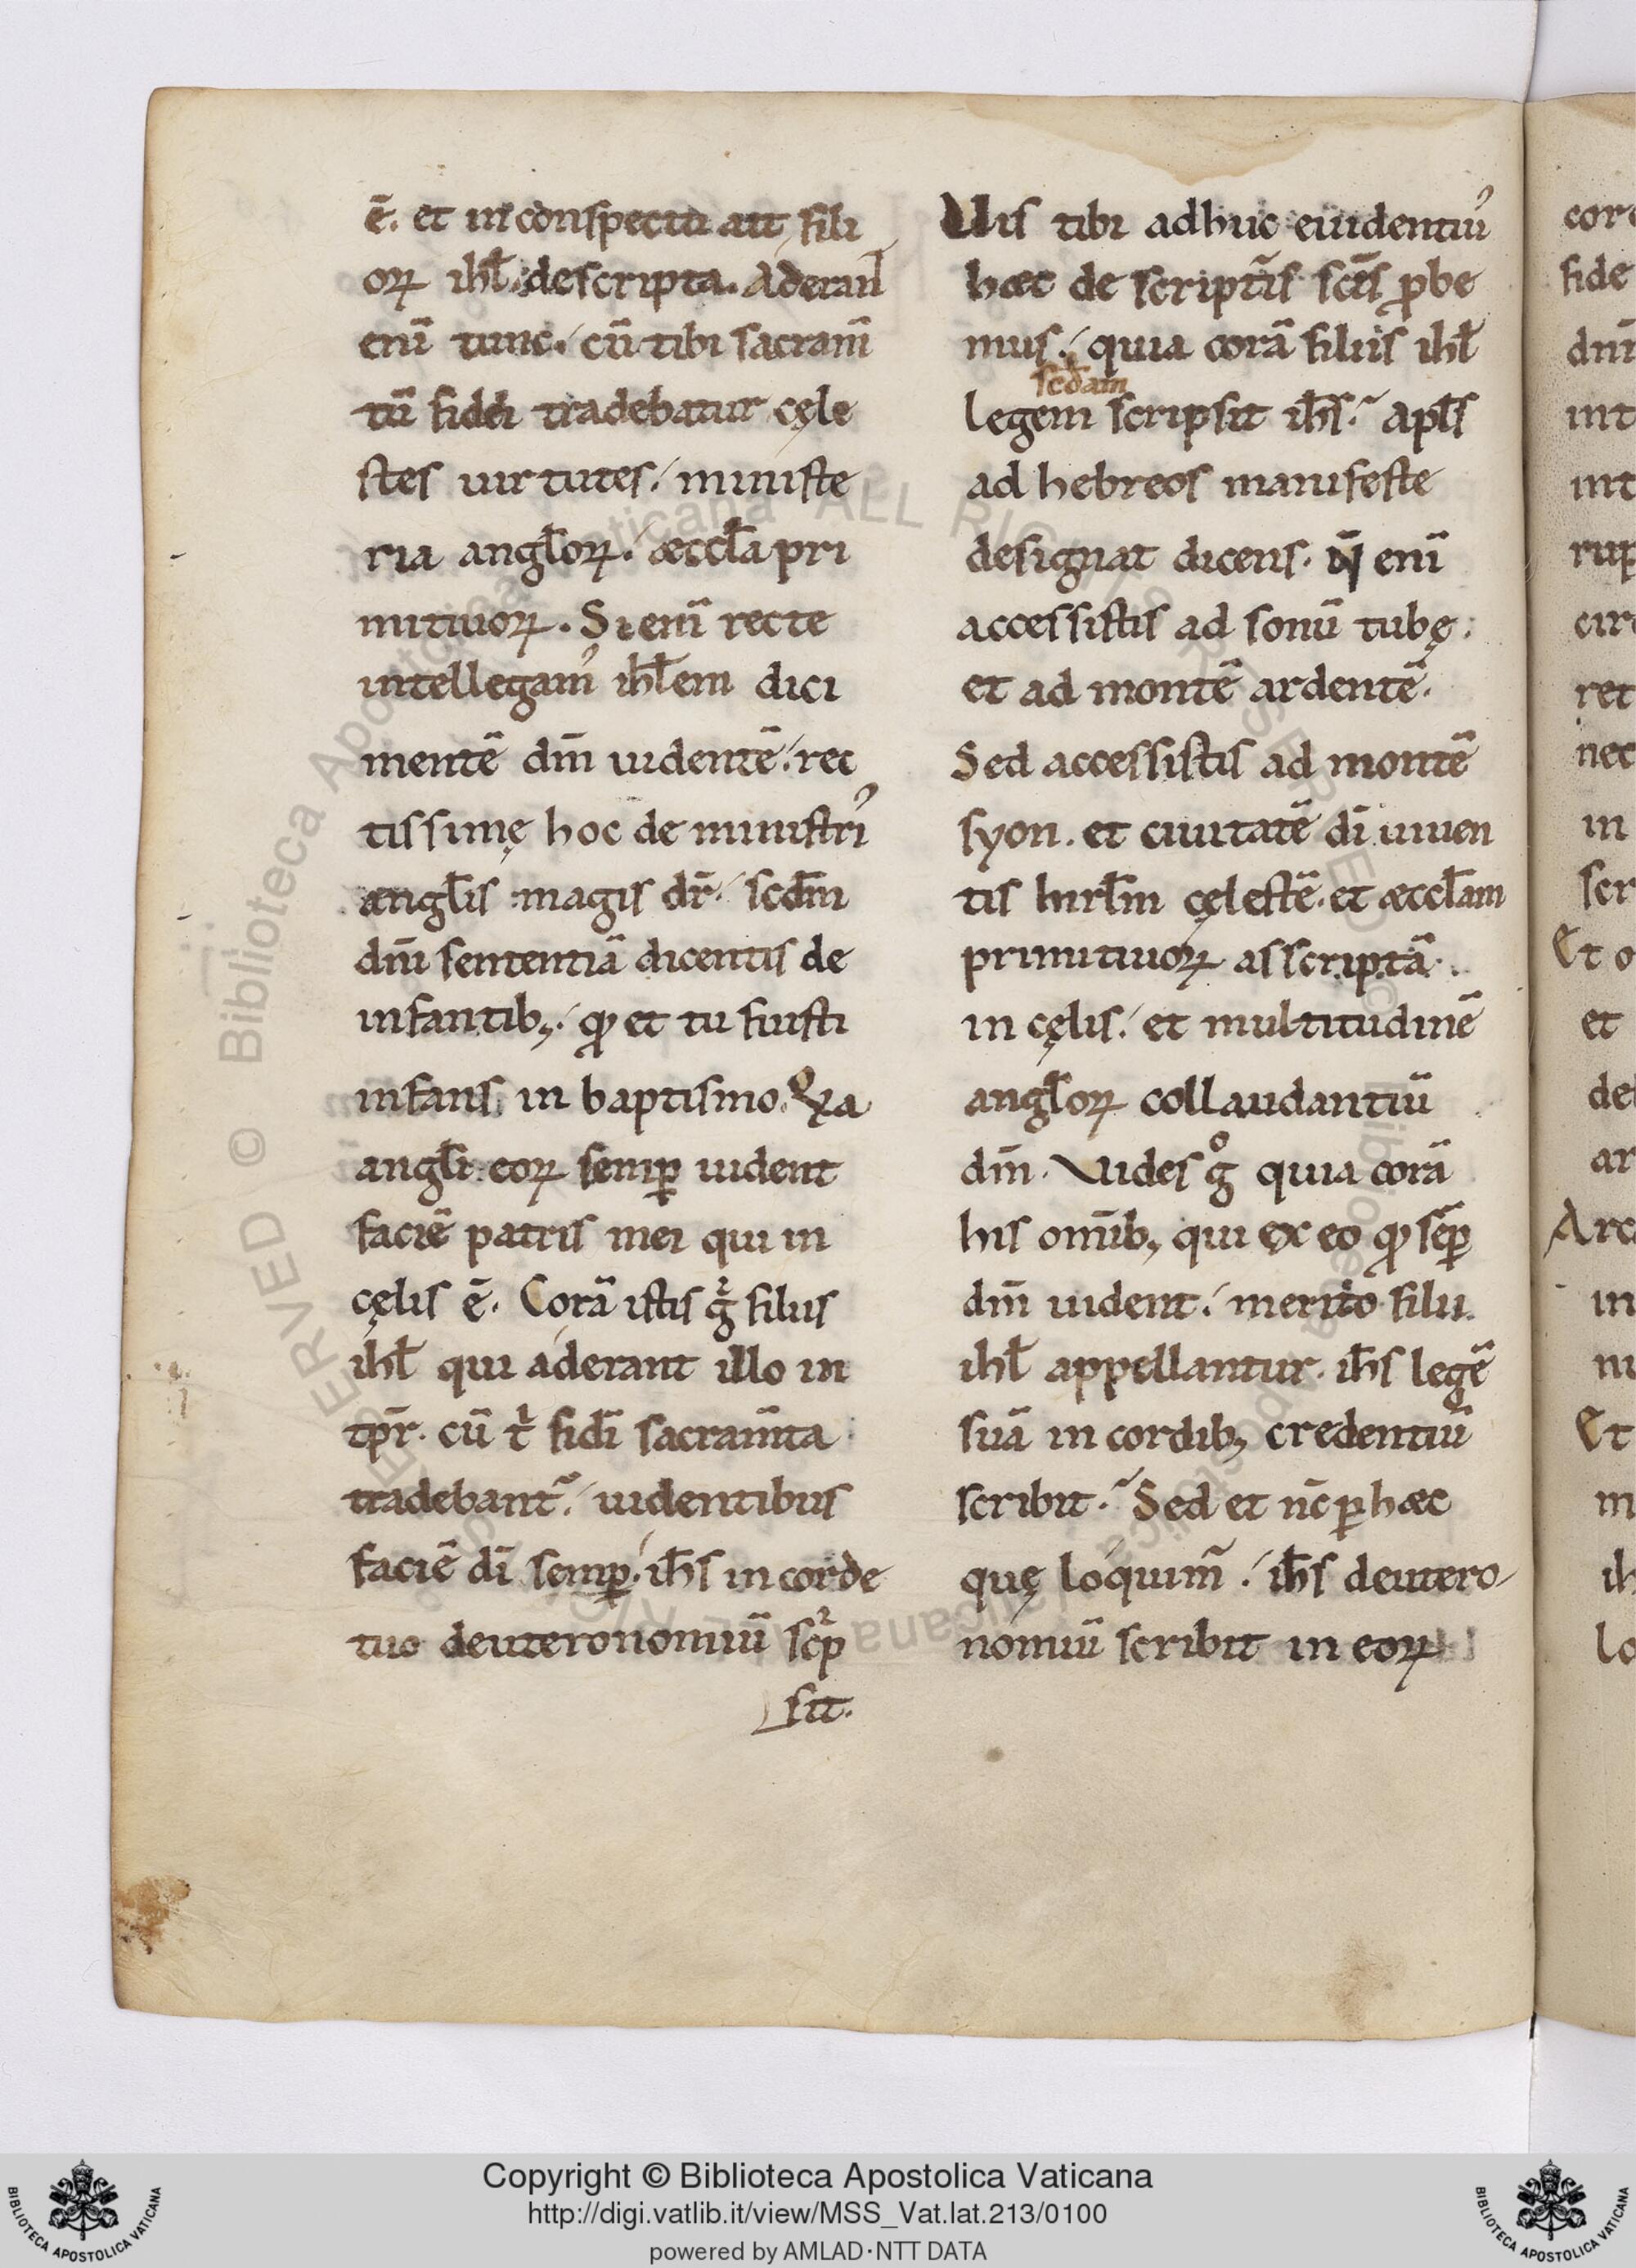 ē. et in conspectu ait fili
oꝝ ihl̄ descripta. Aderant
enī tunc. cū tibi sacram̄
tū fidei tradebatur cęle
stes uirtutes. ministe
ria angl̄oꝝ. æccl̄a pri
mitiuoꝝ. Si enī recte
intellegam᾽ ihl̄em dici
mentē dm̄ uidentē. rec
tissimę hoc de ministri᾽
angl̄is magis dr̄. scdm̄
dnī sententiā dicentis de
infantib; qđ et tu fuisti
infans in baptismo. Qͥa
angl̄i eoꝝ semꝑ uident
faciē patris mei qui in
cęlis ē. Corā istis gͥ filiis
ihl̄ qui aderant illo in
tꝑr̄. cū tͥ fidī sacram̄ta
tradebant᷑. uidentibus
faciē dī semꝑ. ih̄s in corde
tuo deuteronomiū scͥp
sit.
Uis tibi adhuc euidentiu᾽
hæc de scriptᷓis scīs ꝓbe
mus. quia corā filiis ihl̄
scđam
legem scripsit ih̄s. apl̄s
ad hebreos manifeste
designat dicens. N̄ enī
accessistis ad sonū tubę.
et ad montē ardentē.
Sed accessistis ad montē
syon. et ciuitatē dī uiuen
tis hirl̄m cęlestē. et æccl̄am
primitiuoꝝ asscriptā.
in cęlis. et multitudinē
angl̄oꝝ collaudantiū
dm̄. Vides gͦ quia corā
his om̄ib; qui ex eo qđ sēꝑ
dm̄ uident. merito filii
ihl̄ appellantur. ih̄s legē
suā in cordib; credentiū
scribit. Sed et nc̄ ꝑ hæc
quę loquim᷑. ih̄s deutero
nomiū scribit in eoꝝ
core
fide
dnī
int
int
rup
circ
ret
nec
in
scr
Et o
et
del
ar
Arc
in
ni
Et
m
ih
lo
Copyright © Biblioteca Apostolica Vaticana
http://digi.vatlib.it/view/MSS_Vat.lat.213/0100
powered by AMLAD·NTT DATA
BIBLIOTECA APOSTOLICA VATICANA
BIBLIOTECA APOSTOLICA VATICANA